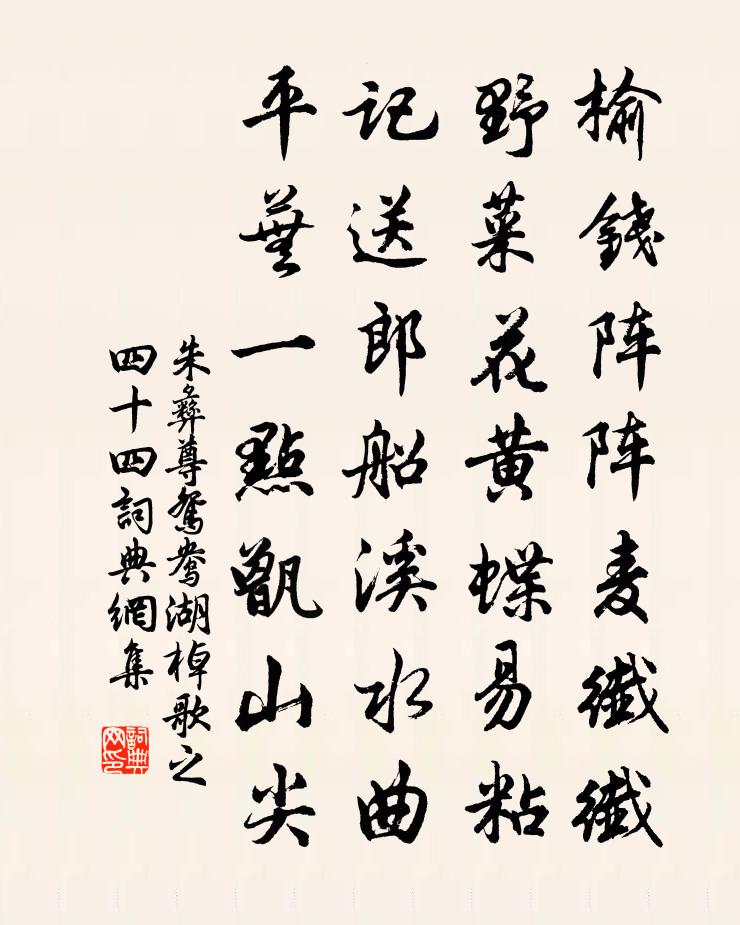 榆錢阵阵麦纖纖
野菜花黄蝶易粘
记送郎船溪水曲
平蕪一點甑山尖
朱彝尊鴛鴦湖棹歌之
四十四詞典網集
詞典
网印